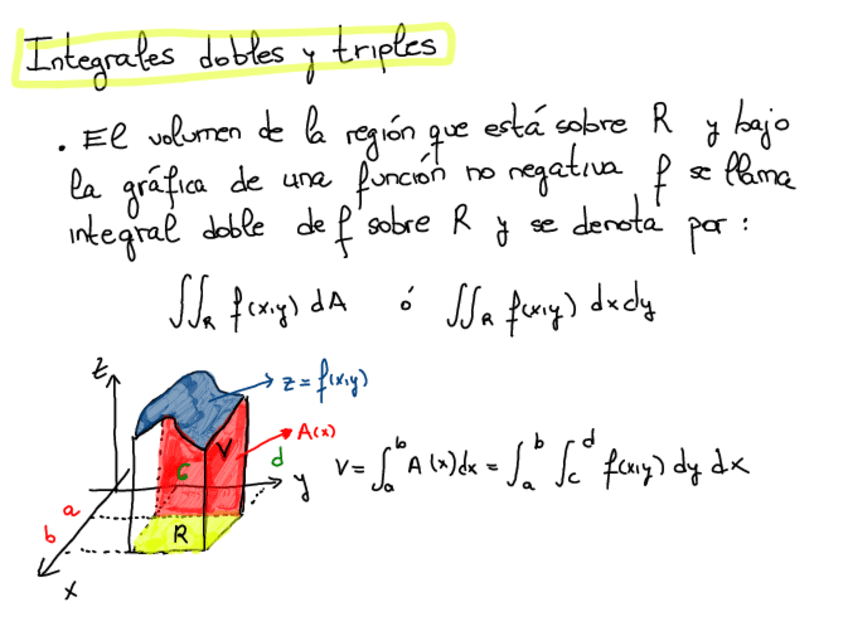 Integrales dobles y triples
. El volumen de la región que está sobre R y bajo
la gráfica de una función no negativa f se llama
integral doble de f sobre R y se denota por:
∬_R f(x,y) dA ó ∬_R f(x,y) dxdy
z
z = f(x,y)
A(x)
V
C
d
y
a
b
R
x
V = ∫_a^b A(x)dx = ∫_a^b ∫_c^d f(x,y) dy dx